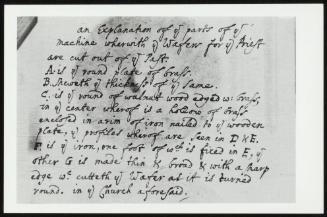 an Explanation of yͤ parts of yͤ
machine wherwith yͤ Wafers for yͤ Priest
are cut out of yͤ Past:
A. is yͤ round plate of brass.
B. Sheweth yͤ thickness of yͤ same.
C. is yͤ round of walnut wood edged wͭ: brass,
in yͤ center wherof is a hollow of brass
enclosed in a rim of iron nailed to yͤ wooden
plate, yͤ profiles wherof are seen in D & E.
F. is yͤ iron, one foot of wᶜʰ is fixed in E, yͤ
other G is made thin & broad & with a sharp
edge wᶜʰ cutteth yͤ Wafer as it is turned
round. in yͤ Church aforesaid.